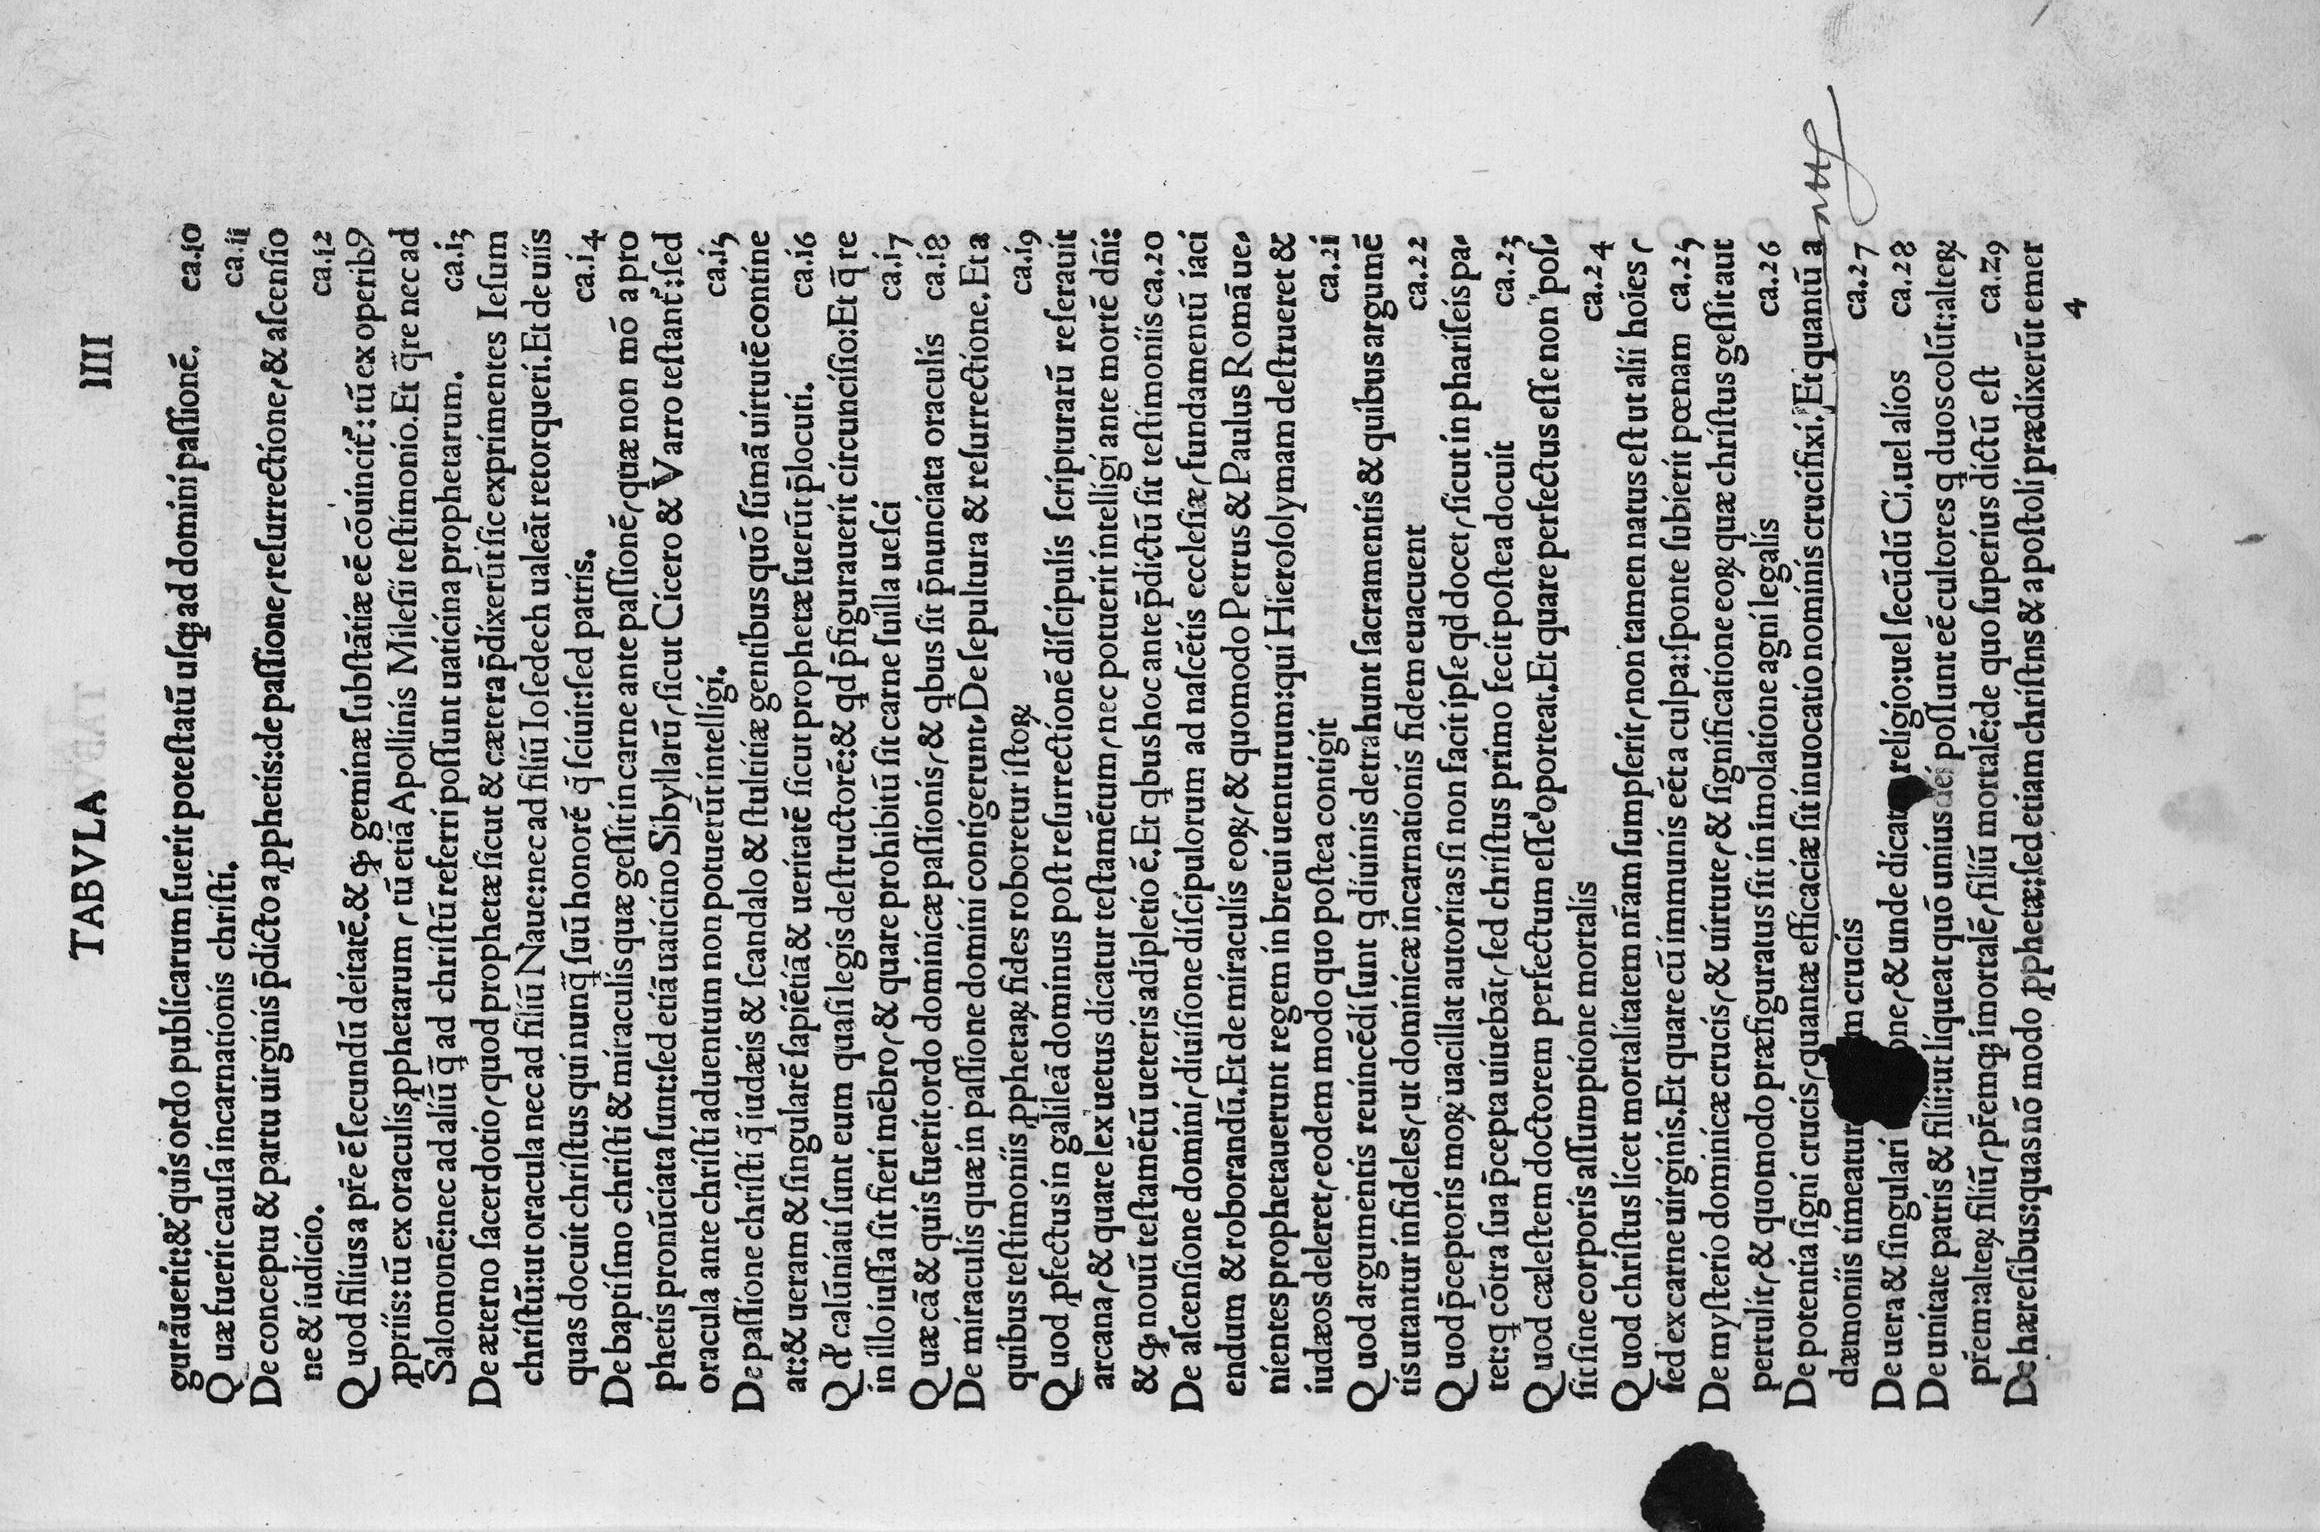 TABVLA IIII
gurauerit:&quis ordo publicarum fuerit potestatū usq; ad domini passionē. ca.10
Quæ fuerit causa incarnationis christi. ca.11
De conceptu & partu uirginis p̄dicto a ꝓphetis:de passione,resurrectione,& ascensio ne & iudicio. ca.12
Quod filius a pr̄e ē secundū deitatē.& ꝙ geminæ substātiæ eē cōuincit᷑:tū ex operibꝰ
ꝓpriis:tū ex oraculis ꝓphetarum,tū etiā Apollinis Milesii testimonio.Et q̄re nec ad
Salomonē:nec ad aliū q̄ ad christū referri possunt uaticina prophetarum. ca.13
De æterno sacerdotio,quod prophetæ sicut & cætera p̄dixerūt sic exprimentes Iesum
christū:ut oracula nec ad filiū Naue:nec ad filiū Iosedech ualeāt retorqueri.Et de uiis
quas docuit christus qui nunq̄ suū honorē q̄sciuit:sed patris. ca.14
De baptismo christi & miraculis quæ gessit in carne ante passionē,quæ non mō a pro
phetis pronūciata sunt:sed etiā uaticino Sibyllarū,sicut Cicero & Varro testant᷑:sed
oracula ante christi aduentum non potuerūt intelligi. ca.15
De passione christi q̄ iudæis & scandalo & stultitiæ gentibus quō sūmā uirtutē contine
at:& ueram & singularē sapiētiā & ueritatē sicut prophetæ fuerūt p̄locuti. ca.16
Qd᷑ calūniati sunt eum quasi legis destructorē:& qd p̄figurauerit circuncisio:Et q̄ re
in illo iussa sit fieri mēbro,& quare prohibitū sit carne suilla uesci ca.17
Quæ cā & quis fuerit ordo dominicæ passionis,& qbus sit p̄nunciata oraculis ca.18
De miraculis quæ in passione domini contigerunt.De sepultura & resurrectione.Et a
quibus testimoniis ꝓphetaꝝ fides roboretur istoꝝ ca.19
Quod ꝓfectus in galileā dominus post resurrectionē discipulis scripturarū reserauit
arcana,& quare lex uetus dicatur testamētum,nec potuerit intelligi ante mortē dn̄i:
& ꝙ nouū testamētū ueteris adīpletio ē.Et qbus hoc ante p̄dictū sit testimoniis ca.20
De ascensione domini,diuisione discipulorum ad nascētis ecclesiæ,fundamentū iaci
endum & roborandū.Et de miraculis eoꝝ,& quomodo Petrus & Paulus Romā ue-
nientes prophetauerunt regem in breui uenturum:qui Hierosolymam destrueret &
iudæos deleret,eodem modo quo postea contigit ca.21
Quod argumentis reuincēdi sunt q diuinis detrahunt sacramentis & quibus argumē
tis utantur infideles,ut dominicæ incarnationis fidem euacuent ca.22
Quod p̄ceptoris moꝝ uacillat autoritas si non facit ipse qd docet,sicut in phariseis pa-
tet:q cōtra sua p̄cepta uiuebāt,sed christus primo fecit postea docuit ca.23
Quod cælestem doctorem perfectum esse oporteat.Et quare perfectus esse non pos-
sit sine corporis assumptione mortalis ca.24
Quod christus licet mortalitatem nr̄am sumpserit,non tamen natus est ut alii hoīes,
sed ex carne uirginis.Et quare cū immunis eēt a culpa:sponte subierit pœnam ca.25
De mysterio dominicæ crucis,& uirtute,& significatione eoꝝ quæ christus gessit aut
pertulit,& quomodo præfiguratus sit in imolatione agni legalis ca.26
De potentia signi crucis,quantæ efficaciæ sit inuocatio nominis crucifixi.Et quantū a
dæmoniis timeatur m crucis ca.27
De uera & singulari one,& unde dicat religio:uel secūdū Ci.uel alios ca.28
De unitate patris & filii:ut liqueat quō unius dei possunt eē cultores q duos colūt:alteꝝ
pr̄em:alteꝝ filiū,pr̄emq; imortalē,filiū mortalē:de quo superius dictū est ca.29
De hæresibus:quas nō modo ꝓphetæ:sed etiam christns & apostoli prædixerūt emer
4